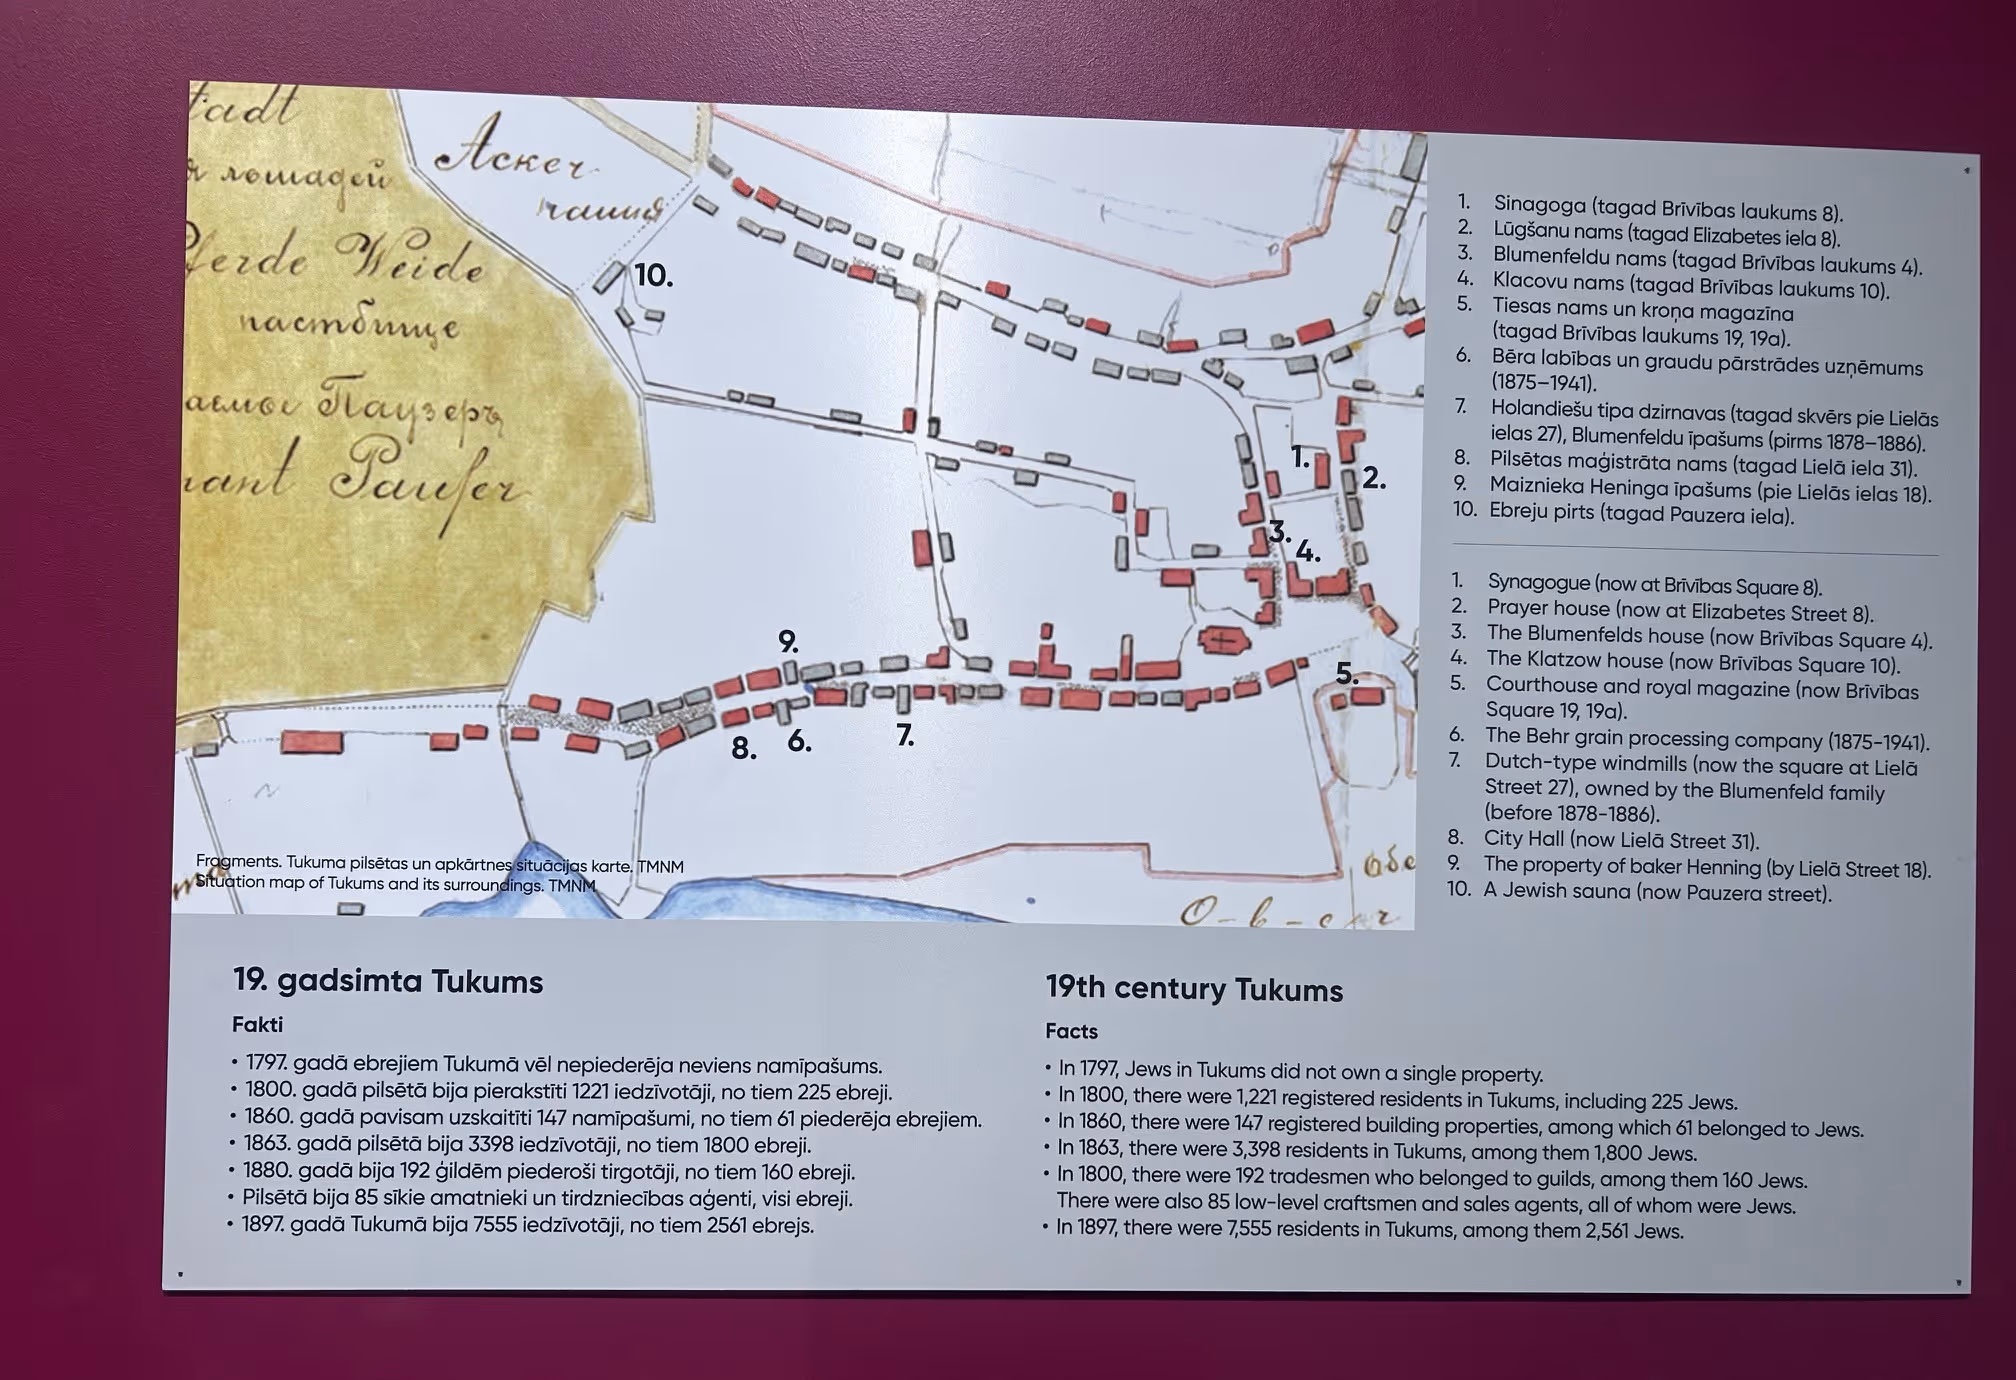 tadt
лошадей
Pferde Weide
пастбище
Паузеръ
Paufer
Аскеч
10.
1.
2.
3.
4.
5.
9.
8.
6.
7.
Fragments. Tukuma pilsētas un apkārtnes situācijas karte. TMNM
Situation map of Tukums and its surroundings. TMNM
1. Sinagoga (tagad Brīvības laukums 8).
2. Lūgšanu nams (tagad Elizabetes iela 8).
3. Blumenfeldu nams (tagad Brīvības laukums 4).
4. Klacovu nams (tagad Brīvības laukums 10).
5. Tiesas nams un kroņa magazīna
(tagad Brīvības laukums 19, 19a).
6. Bēra labības un graudu pārstrādes uzņēmums
(1875–1941).
7. Holandiešu tipa dzirnavas (tagad skvērs pie Lielās
ielas 27), Blumenfeldu īpašums (pirms 1878–1886).
8. Pilsētas maģistrāta nams (tagad Lielā iela 31).
9. Maiznieka Heninga īpašums (pie Lielās ielas 18).
10. Ebreju pirts (tagad Pauzera iela).
1. Synagogue (now at Brīvības Square 8).
2. Prayer house (now at Elizabetes Street 8).
3. The Blumenfelds house (now Brīvības Square 4).
4. The Klatzow house (now Brīvības Square 10).
5. Courthouse and royal magazine (now Brīvības
Square 19, 19a).
6. The Behr grain processing company (1875-1941).
7. Dutch-type windmills (now the square at Lielā
Street 27), owned by the Blumenfeld family
(before 1878-1886).
8. City Hall (now Lielā Street 31).
9. The property of baker Henning (by Lielā Street 18).
10. A Jewish sauna (now Pauzera street).
19. gadsimta Tukums
Fakti
• 1797. gadā ebrejiem Tukumā vēl nepiederēja neviens namīpašums.
• 1800. gadā pilsētā bija pierakstīti 1221 iedzīvotāji, no tiem 225 ebreji.
• 1860. gadā pavisam uzskaitīti 147 namīpašumi, no tiem 61 piederēja ebrejiem.
• 1863. gadā pilsētā bija 3398 iedzīvotāji, no tiem 1800 ebreji.
• 1880. gadā bija 192 ģildēm piederoši tirgotāji, no tiem 160 ebreji.
• Pilsētā bija 85 sīkie amatnieki un tirdzniecības aģenti, visi ebreji.
• 1897. gadā Tukumā bija 7555 iedzīvotāji, no tiem 2561 ebrejs.
19th century Tukums
Facts
• In 1797, Jews in Tukums did not own a single property.
• In 1800, there were 1,221 registered residents in Tukums, including 225 Jews.
• In 1860, there were 147 registered building properties, among which 61 belonged to Jews.
• In 1863, there were 3,398 residents in Tukums, among them 1,800 Jews.
• In 1800, there were 192 tradesmen who belonged to guilds, among them 160 Jews.
There were also 85 low-level craftsmen and sales agents, all of whom were Jews.
• In 1897, there were 7,555 residents in Tukums, among them 2,561 Jews.